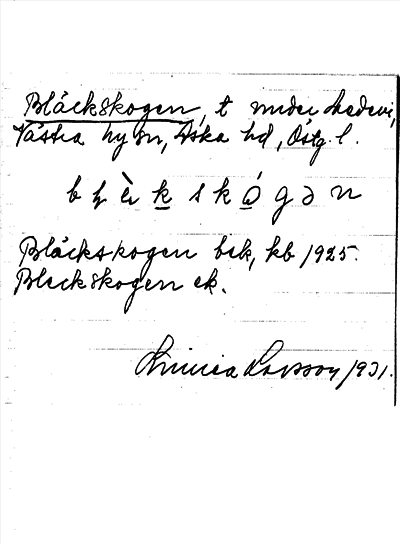 Bläckskogen, t under Medevi,
Västra Ny sn, Aska hd, Östg. l.
b l ὲ k s k ó g ə n
Bläckskogen bek, kb 1925.
Bleckskogen ek.
Linnea Larsson 1931.